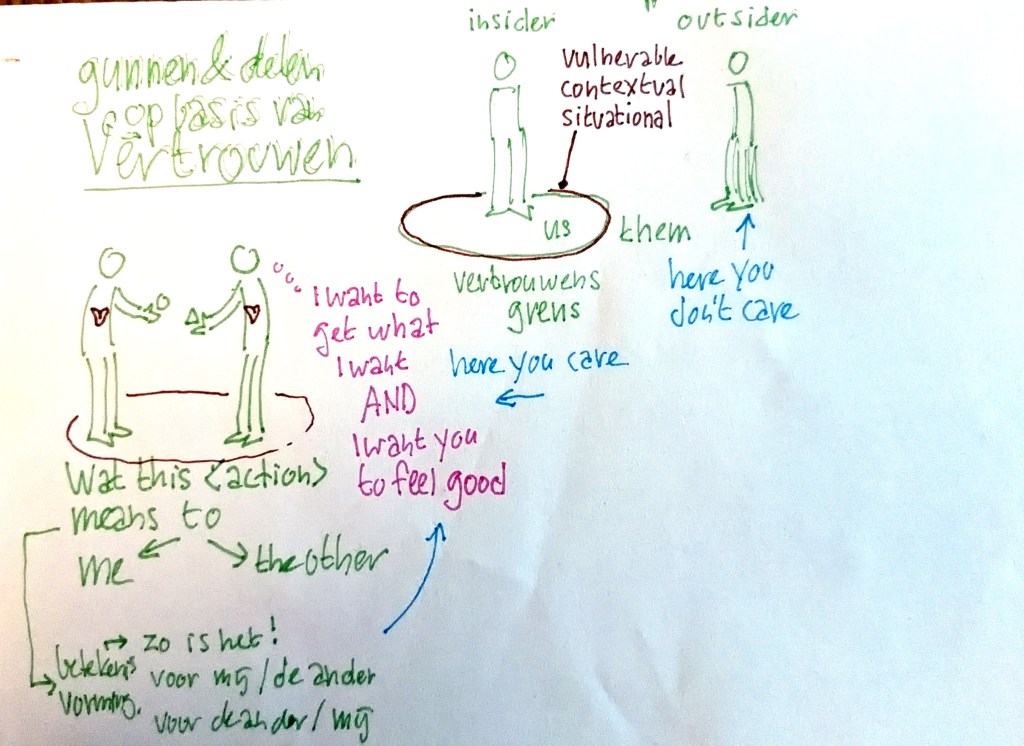 gunnen & delen
op basis van
Vertrouwen
insider
" outsider
vulnerable
contextual
situational
us
them
vertrouwens
grens
here you
don't care
here you care
I want to
get what
I want
AND
I want you
to feel good
Wat this <action>
means to
me
the other
betekenis
vorming.
zo is het!
voor mij / de ander
voor de ander / mij